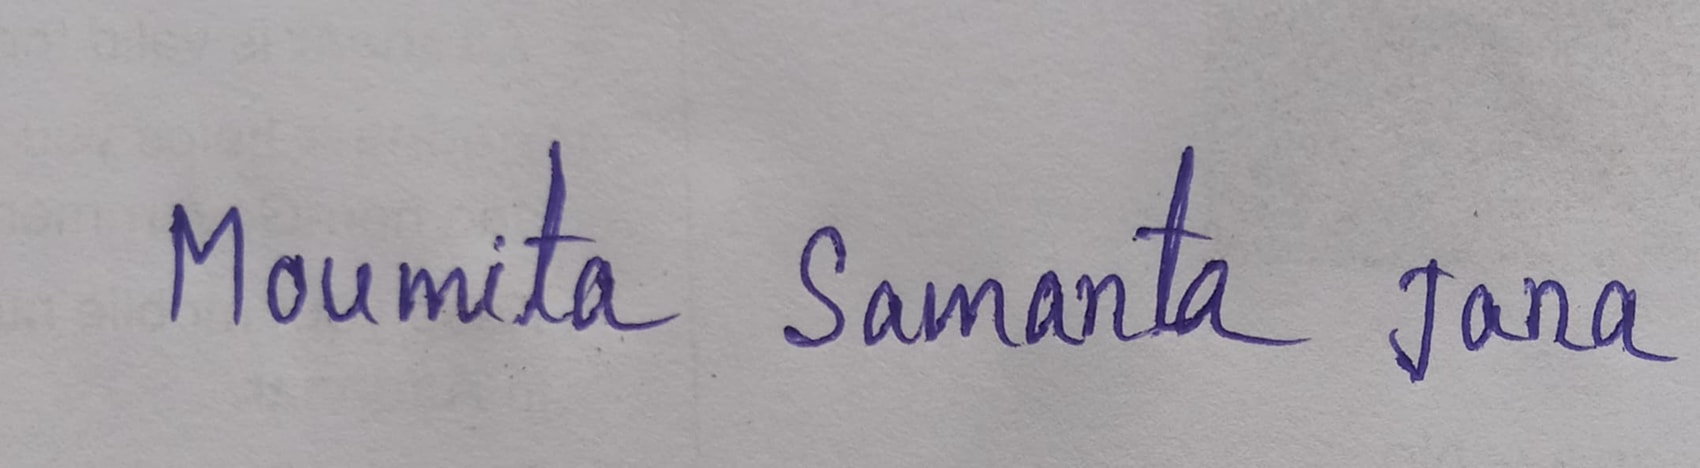 Moumita Samanta Jana